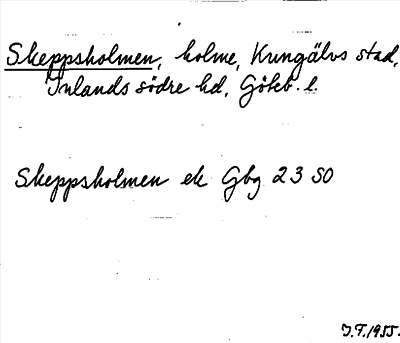 Skeppsholmen, holme, Kungälvs stad,
Inlands södre hd, Göteb. l.
Skeppsholmen ek Gbg 23 SO
J.F. 1955.